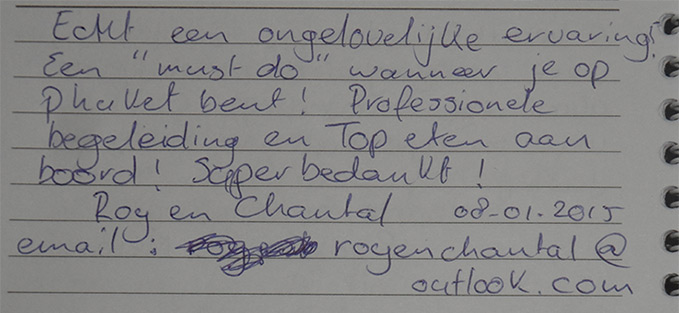 Echt een ongelovelijke ervaring!
Een "must do" wanneer je op
phuket bent! Professionele
begeleiding en Top eten aan
boord! Super bedankt!
Roy en Chantal 08-01-2015
email: royenchantal@
outlook.com